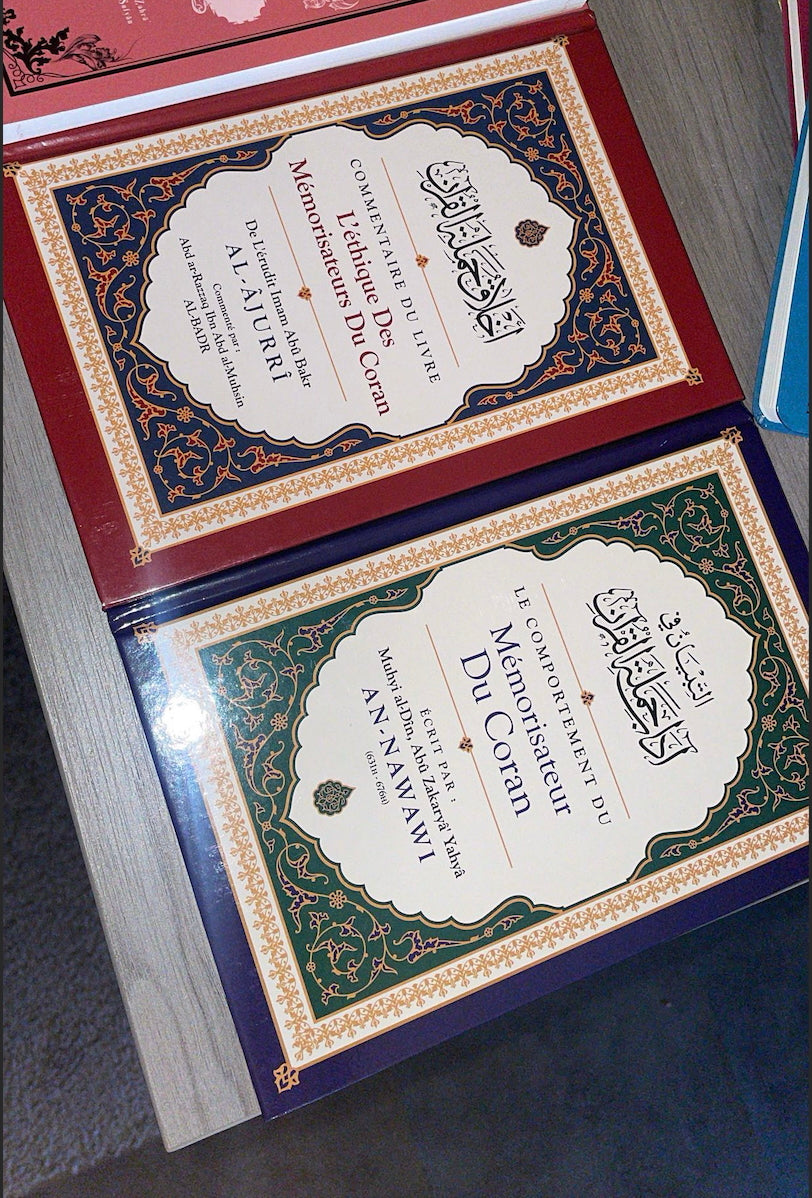 أخلاق حملة القرآن
COMMENTAIRE DU LIVRE
L'éthique Des
Mémorisateurs Du Coran
De L'érudit Imam Abû Bakr
AL-ÂJURRÎ
Commenté par :
Abd ar-Razzaq Ibn Abd al-Muhsin
ALBADR
التبيان في
آداب حملة القرآن
LE COMPORTEMENT DU
Mémorisateur
Du Coran
ÉCRIT PAR :
Muhyi al-Dîn, Abû Zakaryâ' Yahyâ
AN-NAWAWI
(631H : 676H)